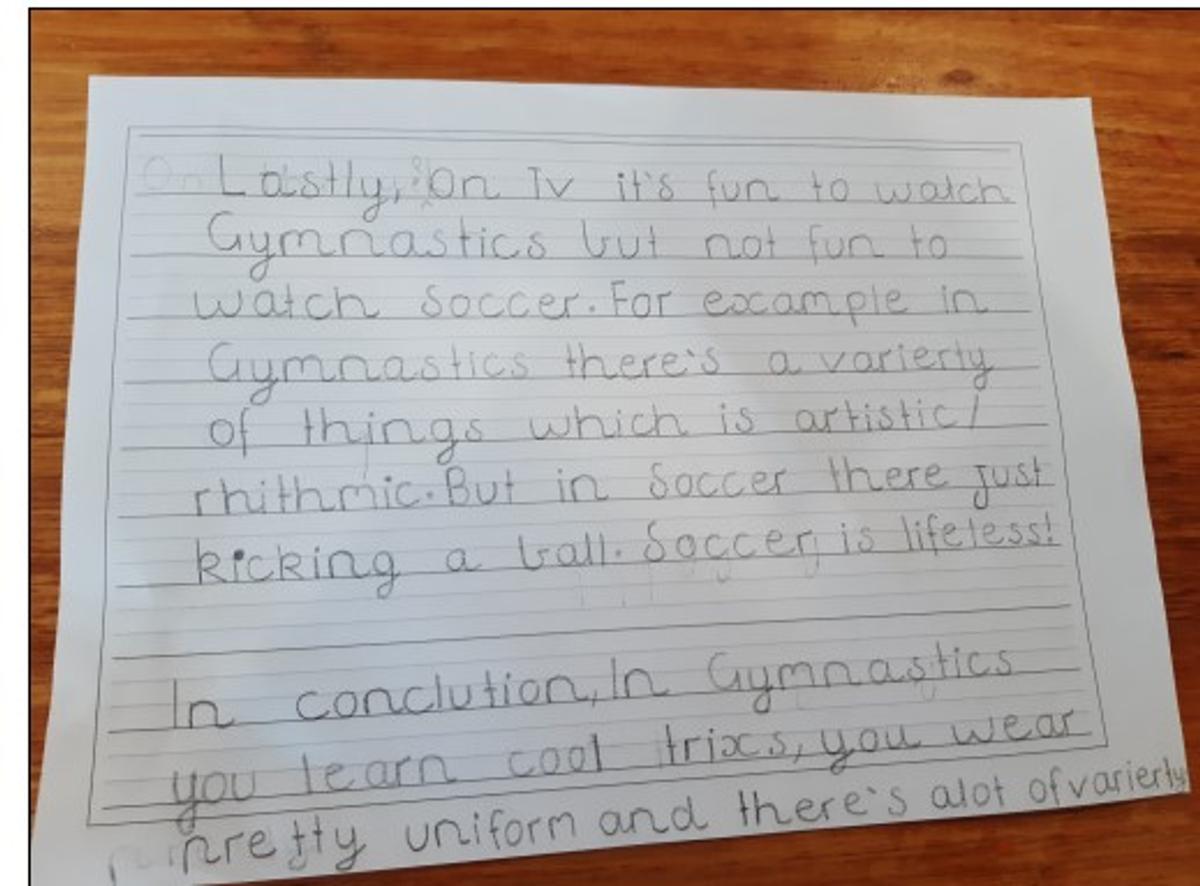 Lastly, On Tv it's fun to watch
Gymnastics but not fun to
watch Soccer. For example in
Gymnastics there's a varierty
of things which is artistic/
rhithmic. But in Soccer there just
kicking a ball. Soccer is lifeless!
In conclution, In Gymnastics
you learn cool trixs, you wear
pretty uniform and there's alot of varierty